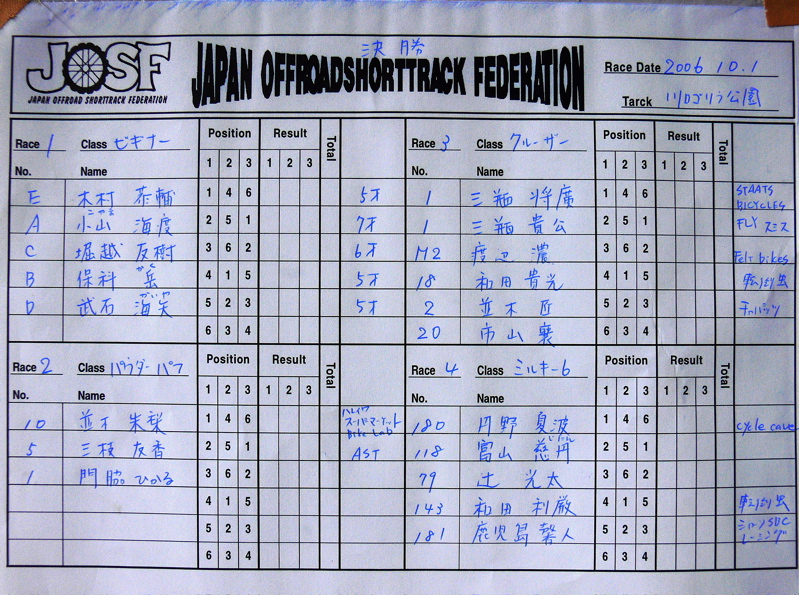 決勝
JOSF
JAPAN OFFROAD SHORTTRACK FEDERATION
JAPAN OFFROADSHORTTRACK FEDERATION
Race Date 2006 10.1
Tarck 川口ゴリラ公園
Race 1 Class ビギナー Position Result Total
1 2 3 1 2 3
No. Name
E 木村 恭輔 1 4 6 5才
こやま
A 小山 海度 2 5 1 7才
C 堀越 友樹 3 6 2 6才
がく
B 保科 岳 4 1 5 5才
かいや
D 武石 海矢 5 2 3 5才
6 3 4
Race 3 Class クルーザー Position Result Total
1 2 3 1 2 3
No. Name
1 三瓶 将廣 1 4 6 STAATS BICYCLES
1 三瓶 貴公 2 5 1 FLY スミス
112 渡辺 濃 3 6 2 Felt bikes
18 和田 貴光 4 1 5
2 並木 匠 5 2 3
20 市山 襄 6 3 4
Race 2 Class パウダーパフ Position Result Total
1 2 3 1 2 3
No. Name
10 並木 朱梨 1 4 6 スーパーマーケット Bike Lab
5 三枝 友香 2 5 1 AST
1 門脇 ひかる 3 6 2
4 1 5
5 2 3
6 3 4
Race 4 Class ミルキー6 Position Result Total
1 2 3 1 2 3
No. Name
180 丹野 夏波 1 4 6 cycle cave
118 富山 慈丹 2 5 1
79 辻 光太 3 6 2
143 和田 利厳 4 1 5
181 鹿児島 馨人 5 2 3 レーシング
6 3 4